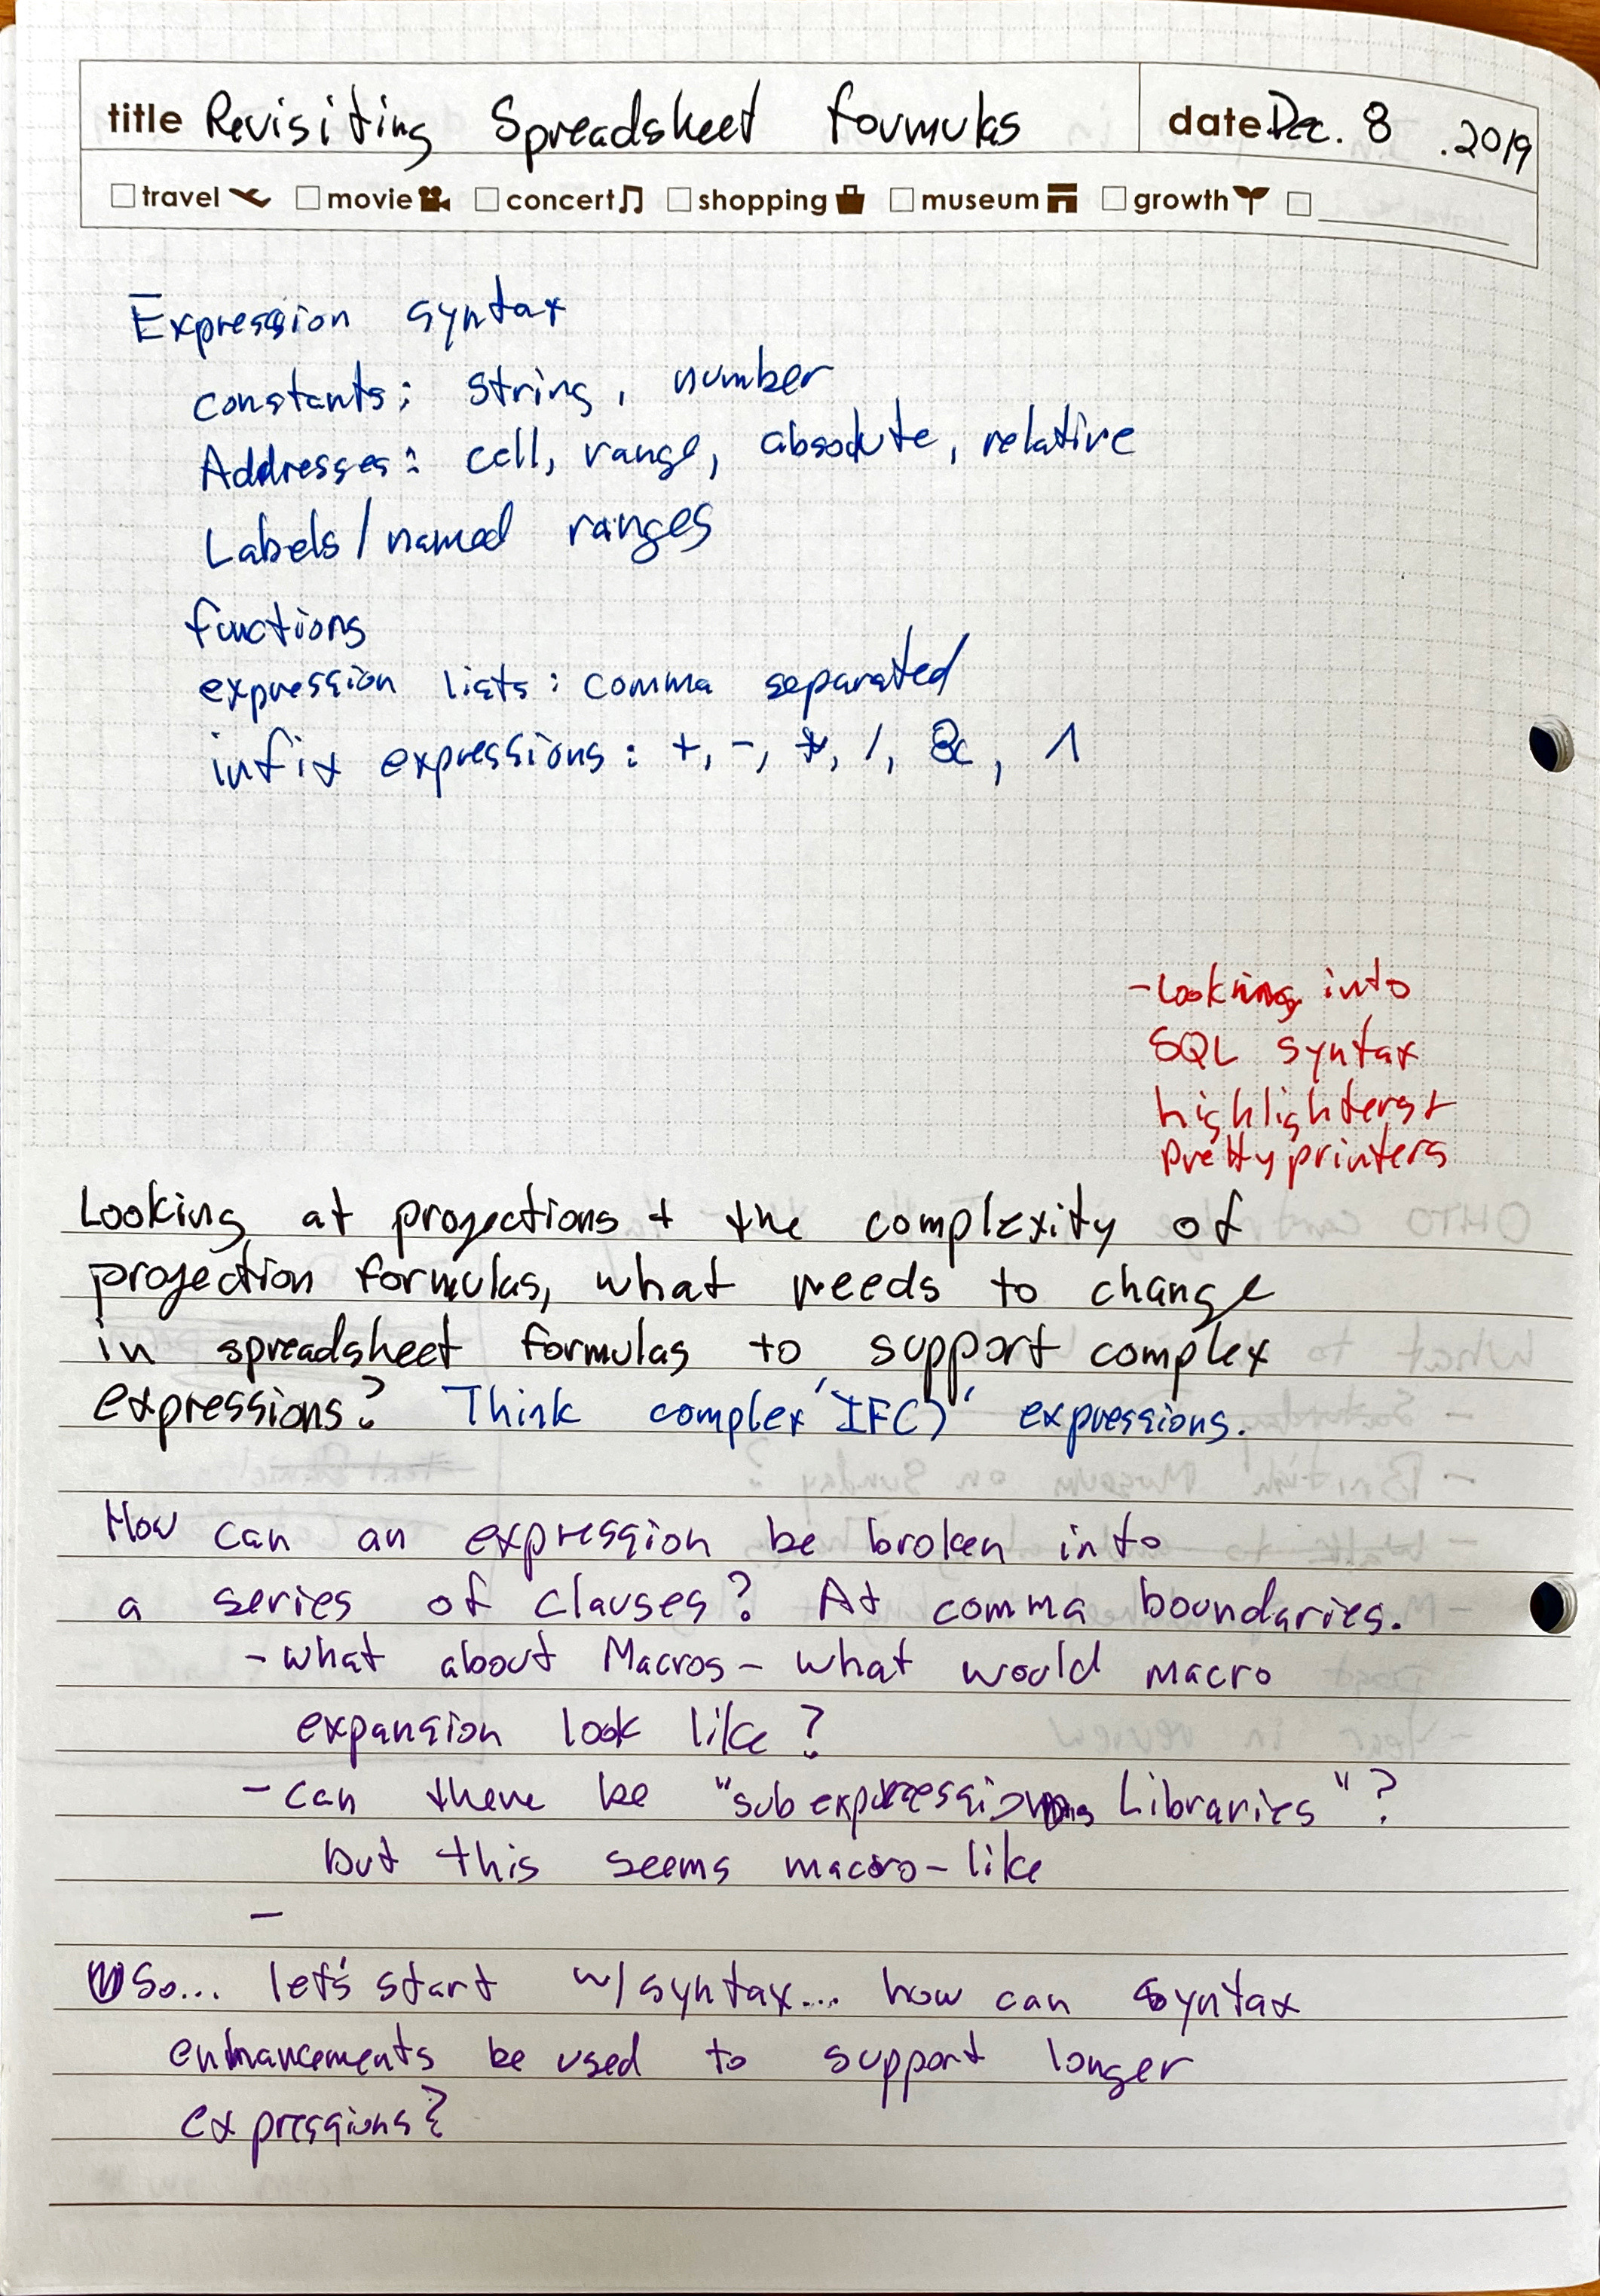 title Revisiting Spreadsheet formulas
date Dec. 8 .2019
travel movie concert shopping museum growth
Expression syntax
constants: string, number
Addresses: cell, range, absolute, relative
Labels/named ranges
functions
expression lists: comma separated
infix expressions: +, -, *, /, &, ^
- Looking into
SQL syntax
highlighters +
Pretty printers
Looking at projections + the complexity of
projection formulas, what needs to change
in spreadsheet formulas to support complex
expressions? Think complex 'IF()' expressions.
How can an expression be broken into
a series of clauses? At comma boundaries.
- what about Macros - what would macro
expansion look like?
- can there be "subexpressions Libraries"?
but this seems macro-like
-
So... let's start w/ syntax... how can syntax
enhancements be used to support longer
expressions?